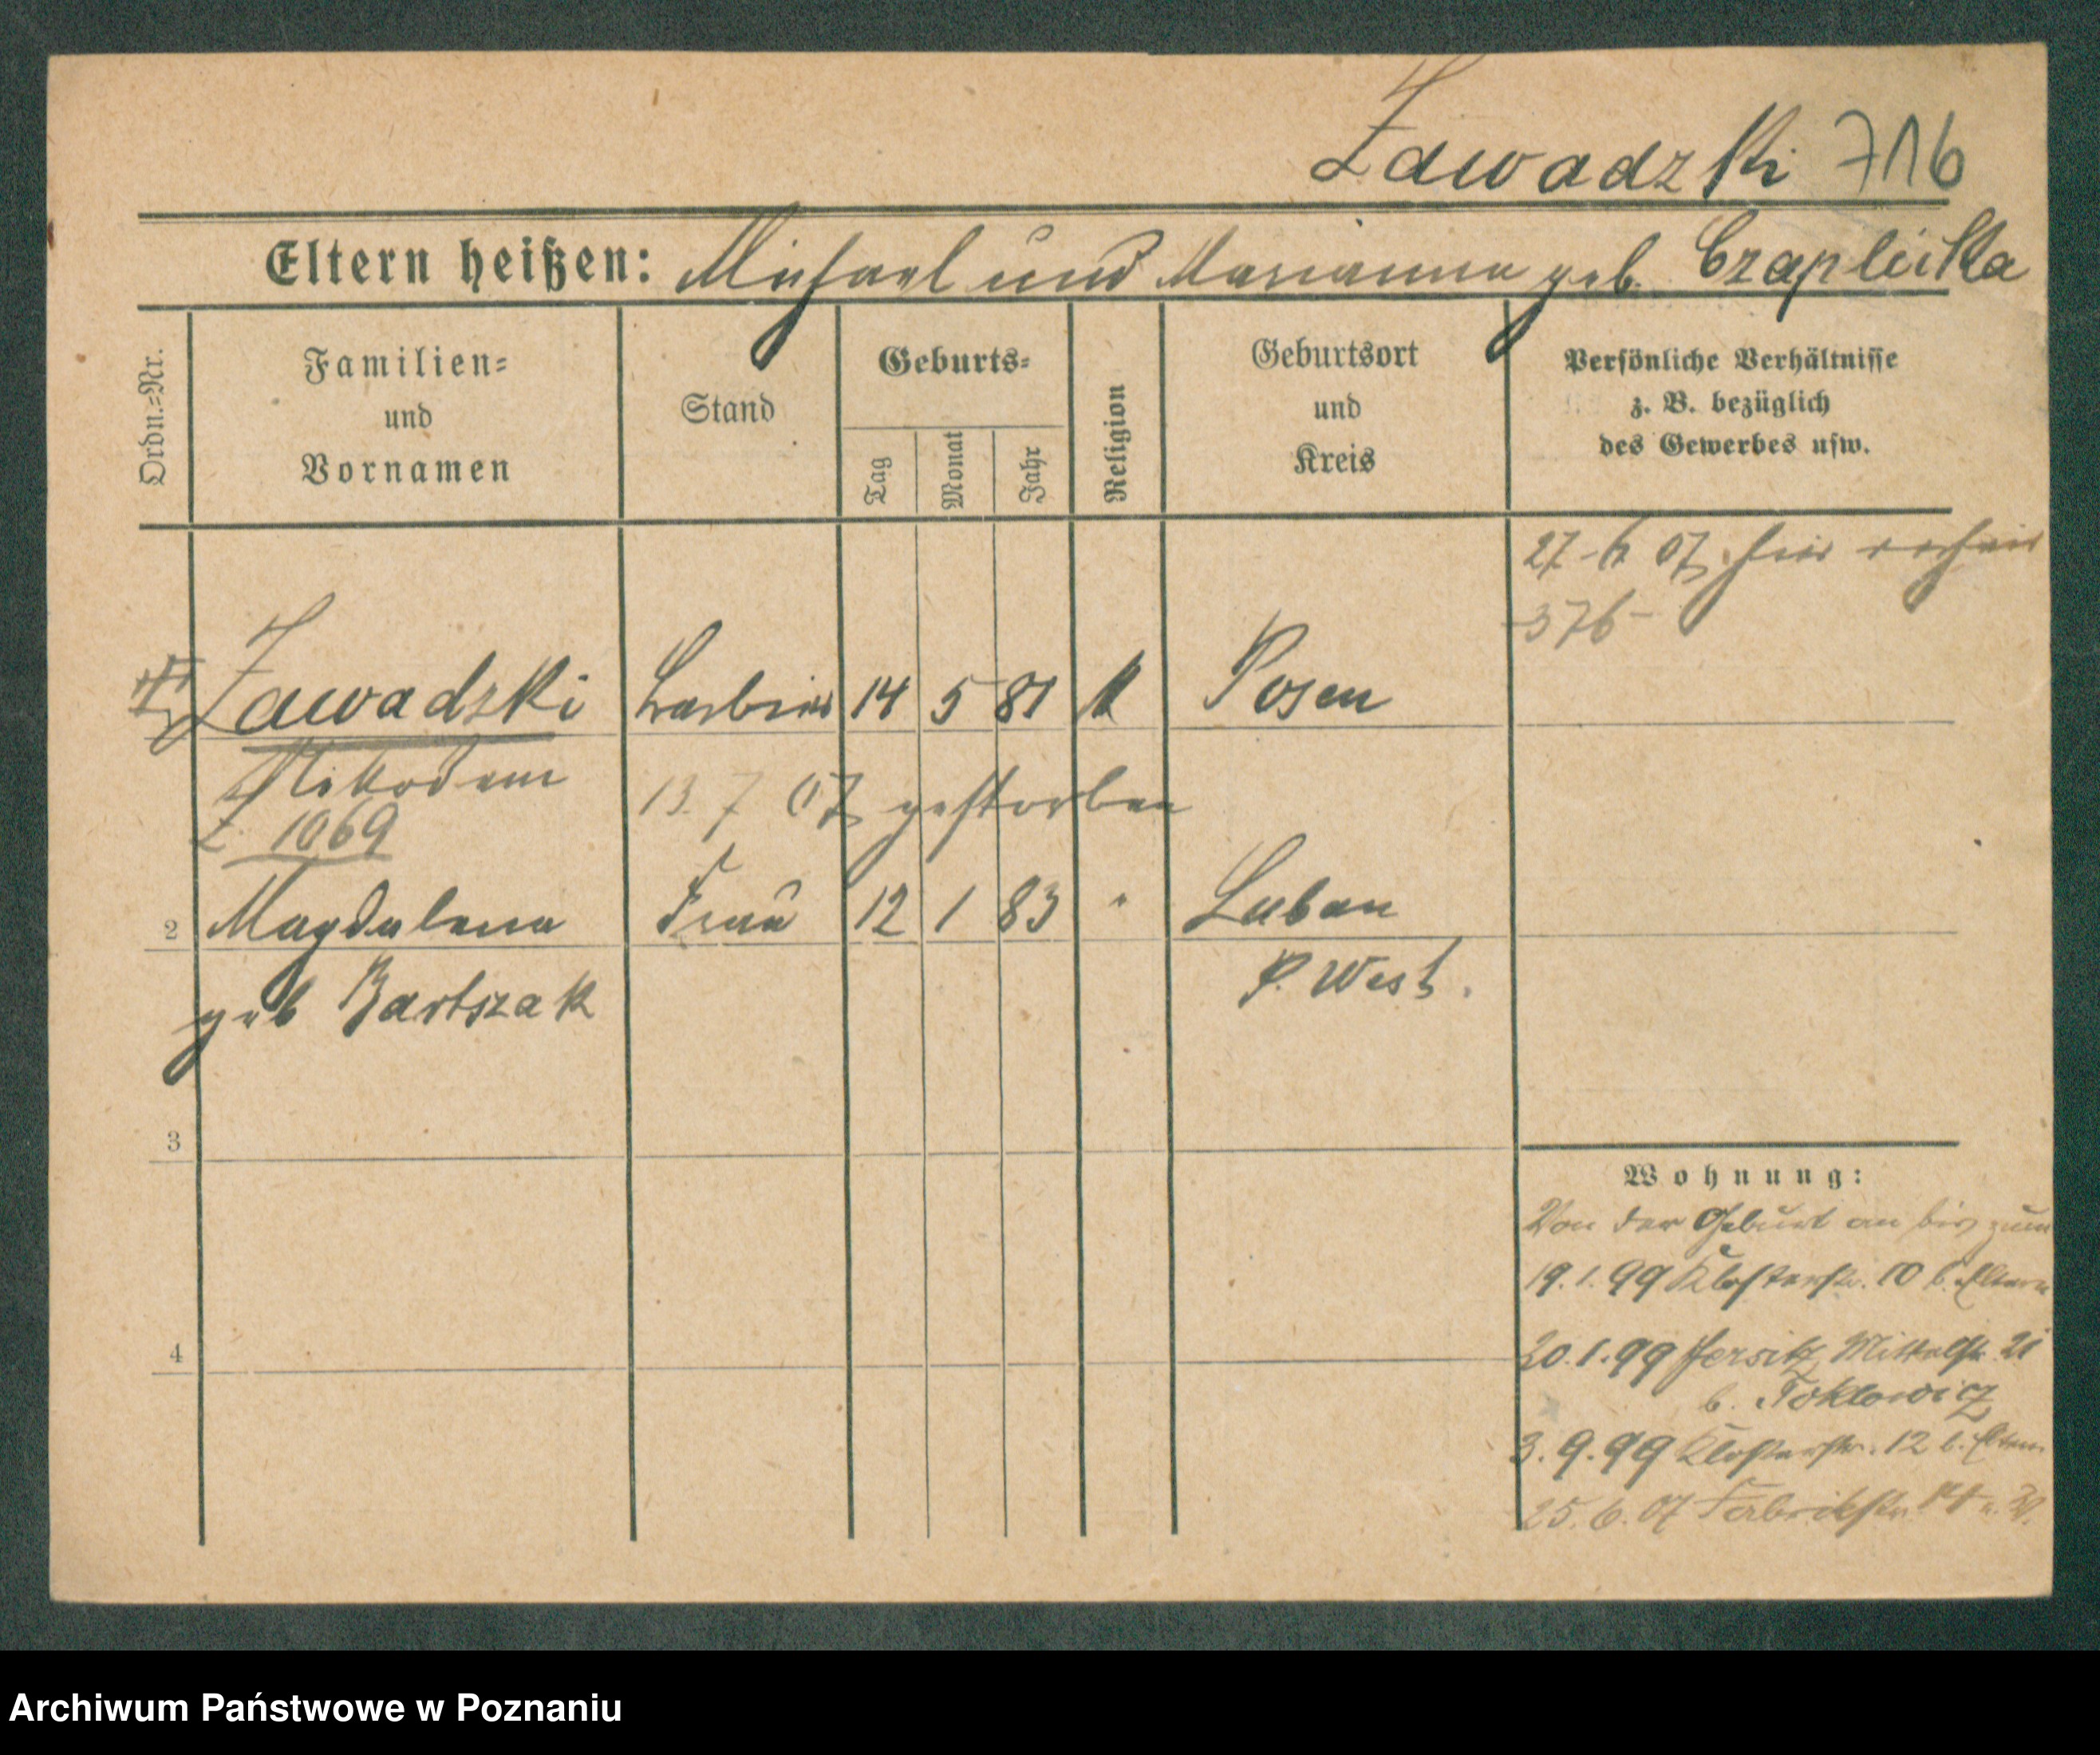 Zawadzki 716
Eltern heißen: Michael und Marianna geb. Czaplicka
Ordn.=Nr.
Familien=
und
Vornamen
Stand
Geburts=
Tag
Monat
Jahr
Religion
Geburtsort
und
Kreis
Persönliche Verhältnisse
z. B. bezüglich
des Gewerbes usw.
27 6 07 hier
-376-
Zawadzki Barbier 14 5 81 k Posen
Nikodem 13. 7 07 gestorben
Z. 1069
2 Magdalena Frau 12 1 83 " Luban
geb Bartszak P. West.
3
4
Wohnung:
Von der Geburt an bis zum
19.1.99 Klosterstr. 10 b. Eltern
20.1.99 Jersitz, Mittelstr. 21
b.
3.9.99 Klosterstr. 12 b. Eltern
25.6.07 Fabrikstr.
Archiwum Państwowe w Poznaniu